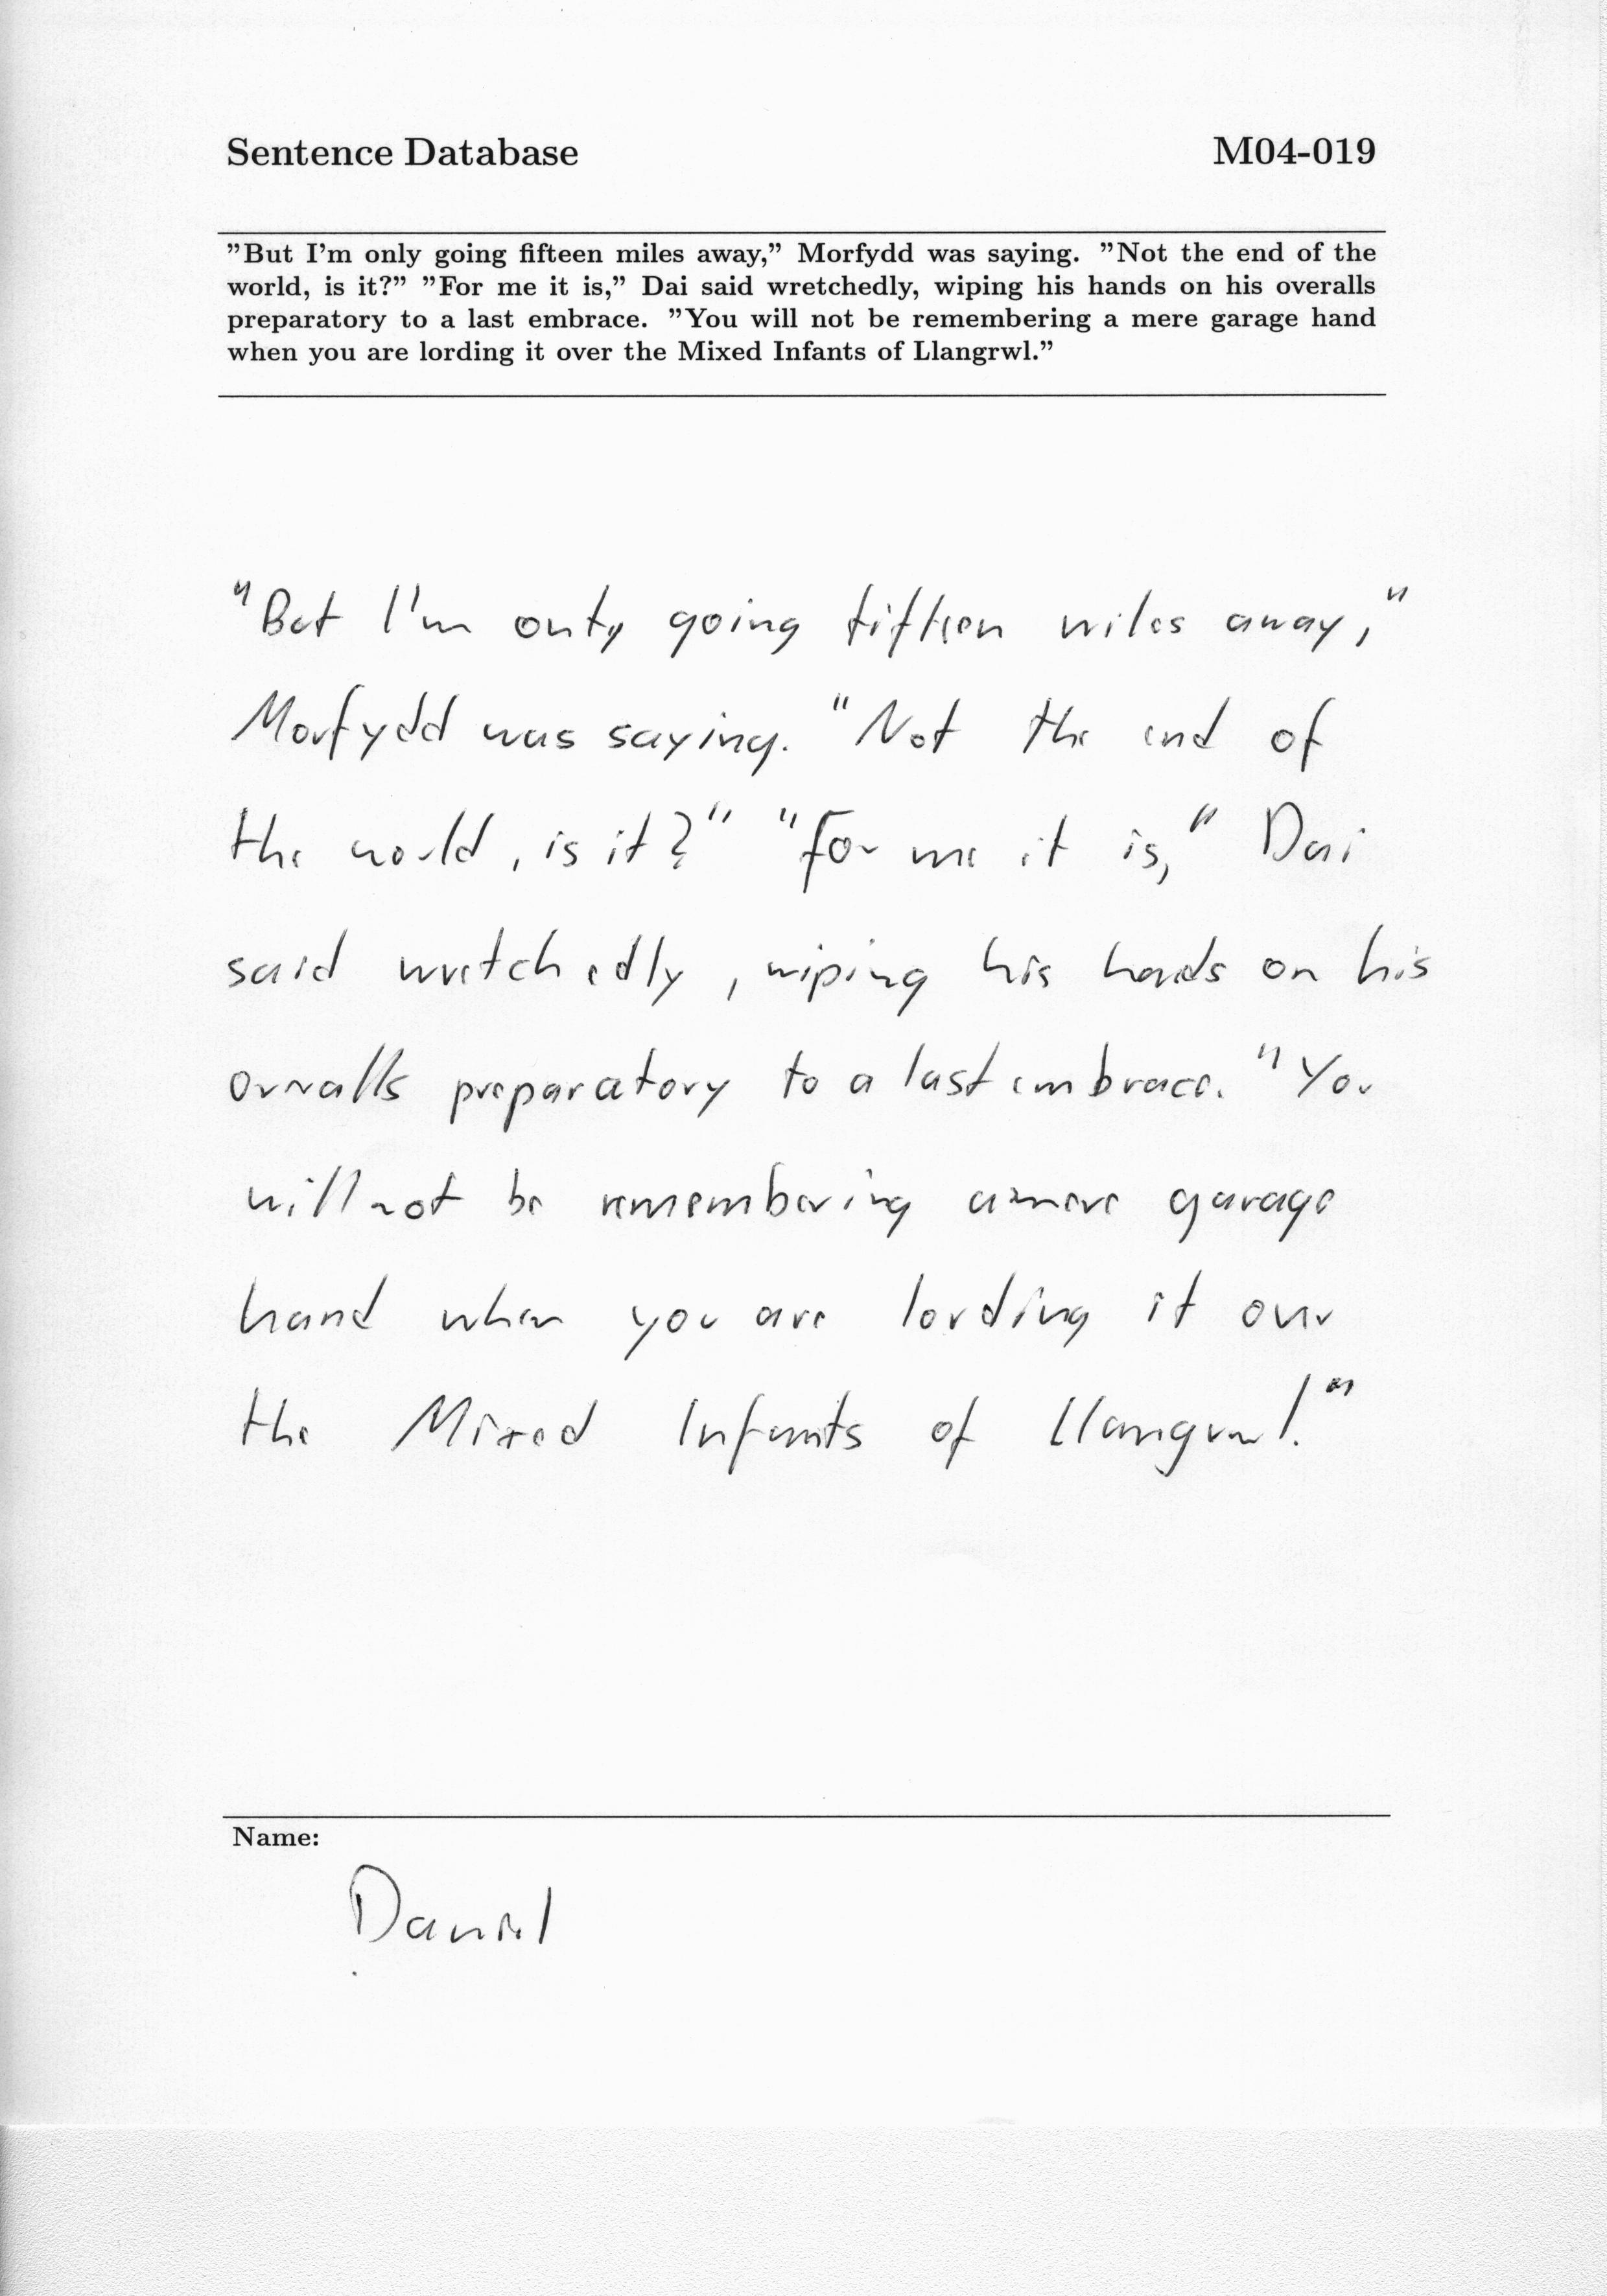 Sentence Database M04-019
"But I'm only going fifteen miles away," Morfydd was saying. "Not the end of the
world, is it?" "For me it is," Dai said wretchedly, wiping his hands on his overalls
preparatory to a last embrace. "You will not be remembering a mere garage hand
when you are lording it over the Mixed Infants of Llangrwl."
"But I'm only going fifteen miles away,"
Morfydd was saying. "Not the end of
the world, is it?" "For me it is," Dai
said wretchedly, wiping his hands on his
overalls preparatory to a last embrace. "You
will not be remembering a mere garage
hand when you are lording it over
the Mixed Infants of Llangrwl."
Name:
Daniel